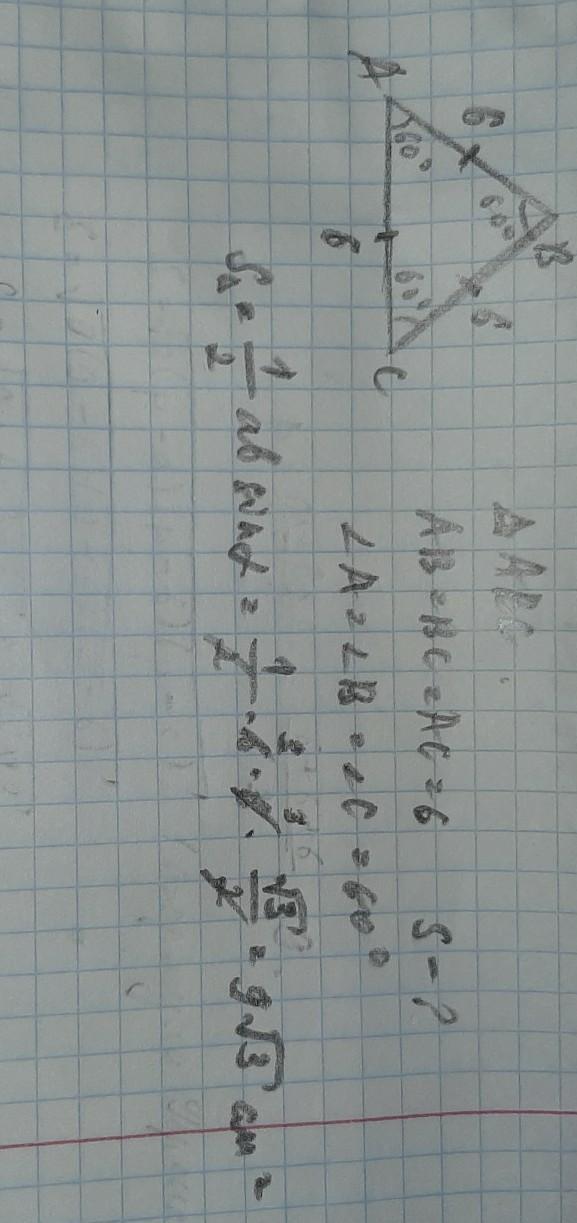 B
6 60° 6
A 60° 60° C
6
△ ABC
AB = BC = AC = 6 S - ?
∠A = ∠B = ∠C = 60°
S△ = 1/2 ab sin α = 1/2 · 6 · 6 · √3/2 = 9√3 см²